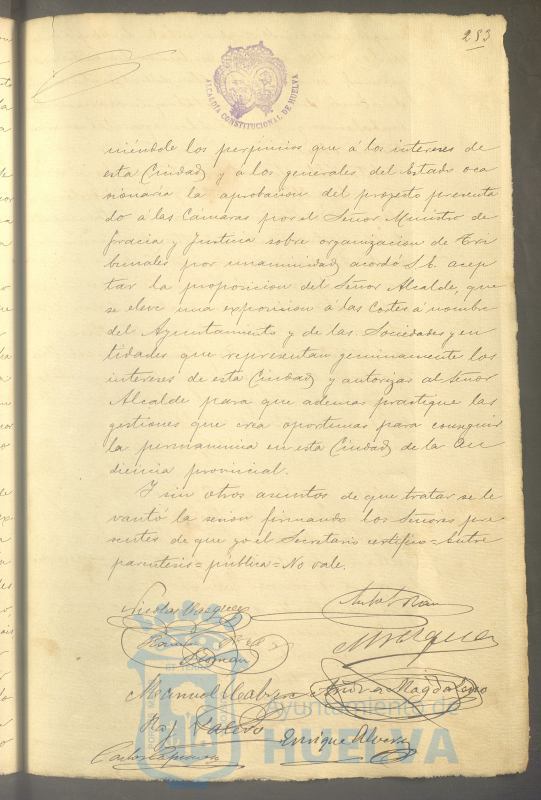 283
ALCALDÍA CONSTITUCIONAL DE HUELVA
niéndole los perjuicios que á los intereses de
esta Ciudad y á los generales del Estado oca
sionaria la aprobacion del proyecto presenta
do á las Cámaras por el Señor Ministro de
Gracia y Justicia sobre organizacion de Tri
bunales por unanimidad acordó S.E. acep
tar la proposicion del Señor Alcalde, que
se eleve una exposicion á las Cortes á nombre
del Ayuntamiento y de las Sociedades y en
tidades que representan genuinamente los
intereses de esta Ciudad y autorizar al Señor
Alcalde para que ademas practique las
gestiones que crea oportunas para conseguir
la permanencia en esta Ciudad de la Au
diencia provincial.
Y sin otros asuntos de que tratar se le
vantó la sesion firmando los Señores pre
sentes de que yo el Secretario certifico = Entre
parentesis = pública = No vale.
Nicolas Vazquez
Ramon
Manuel
Magdaleno
Enrique
Ayuntamiento de
HUELVA